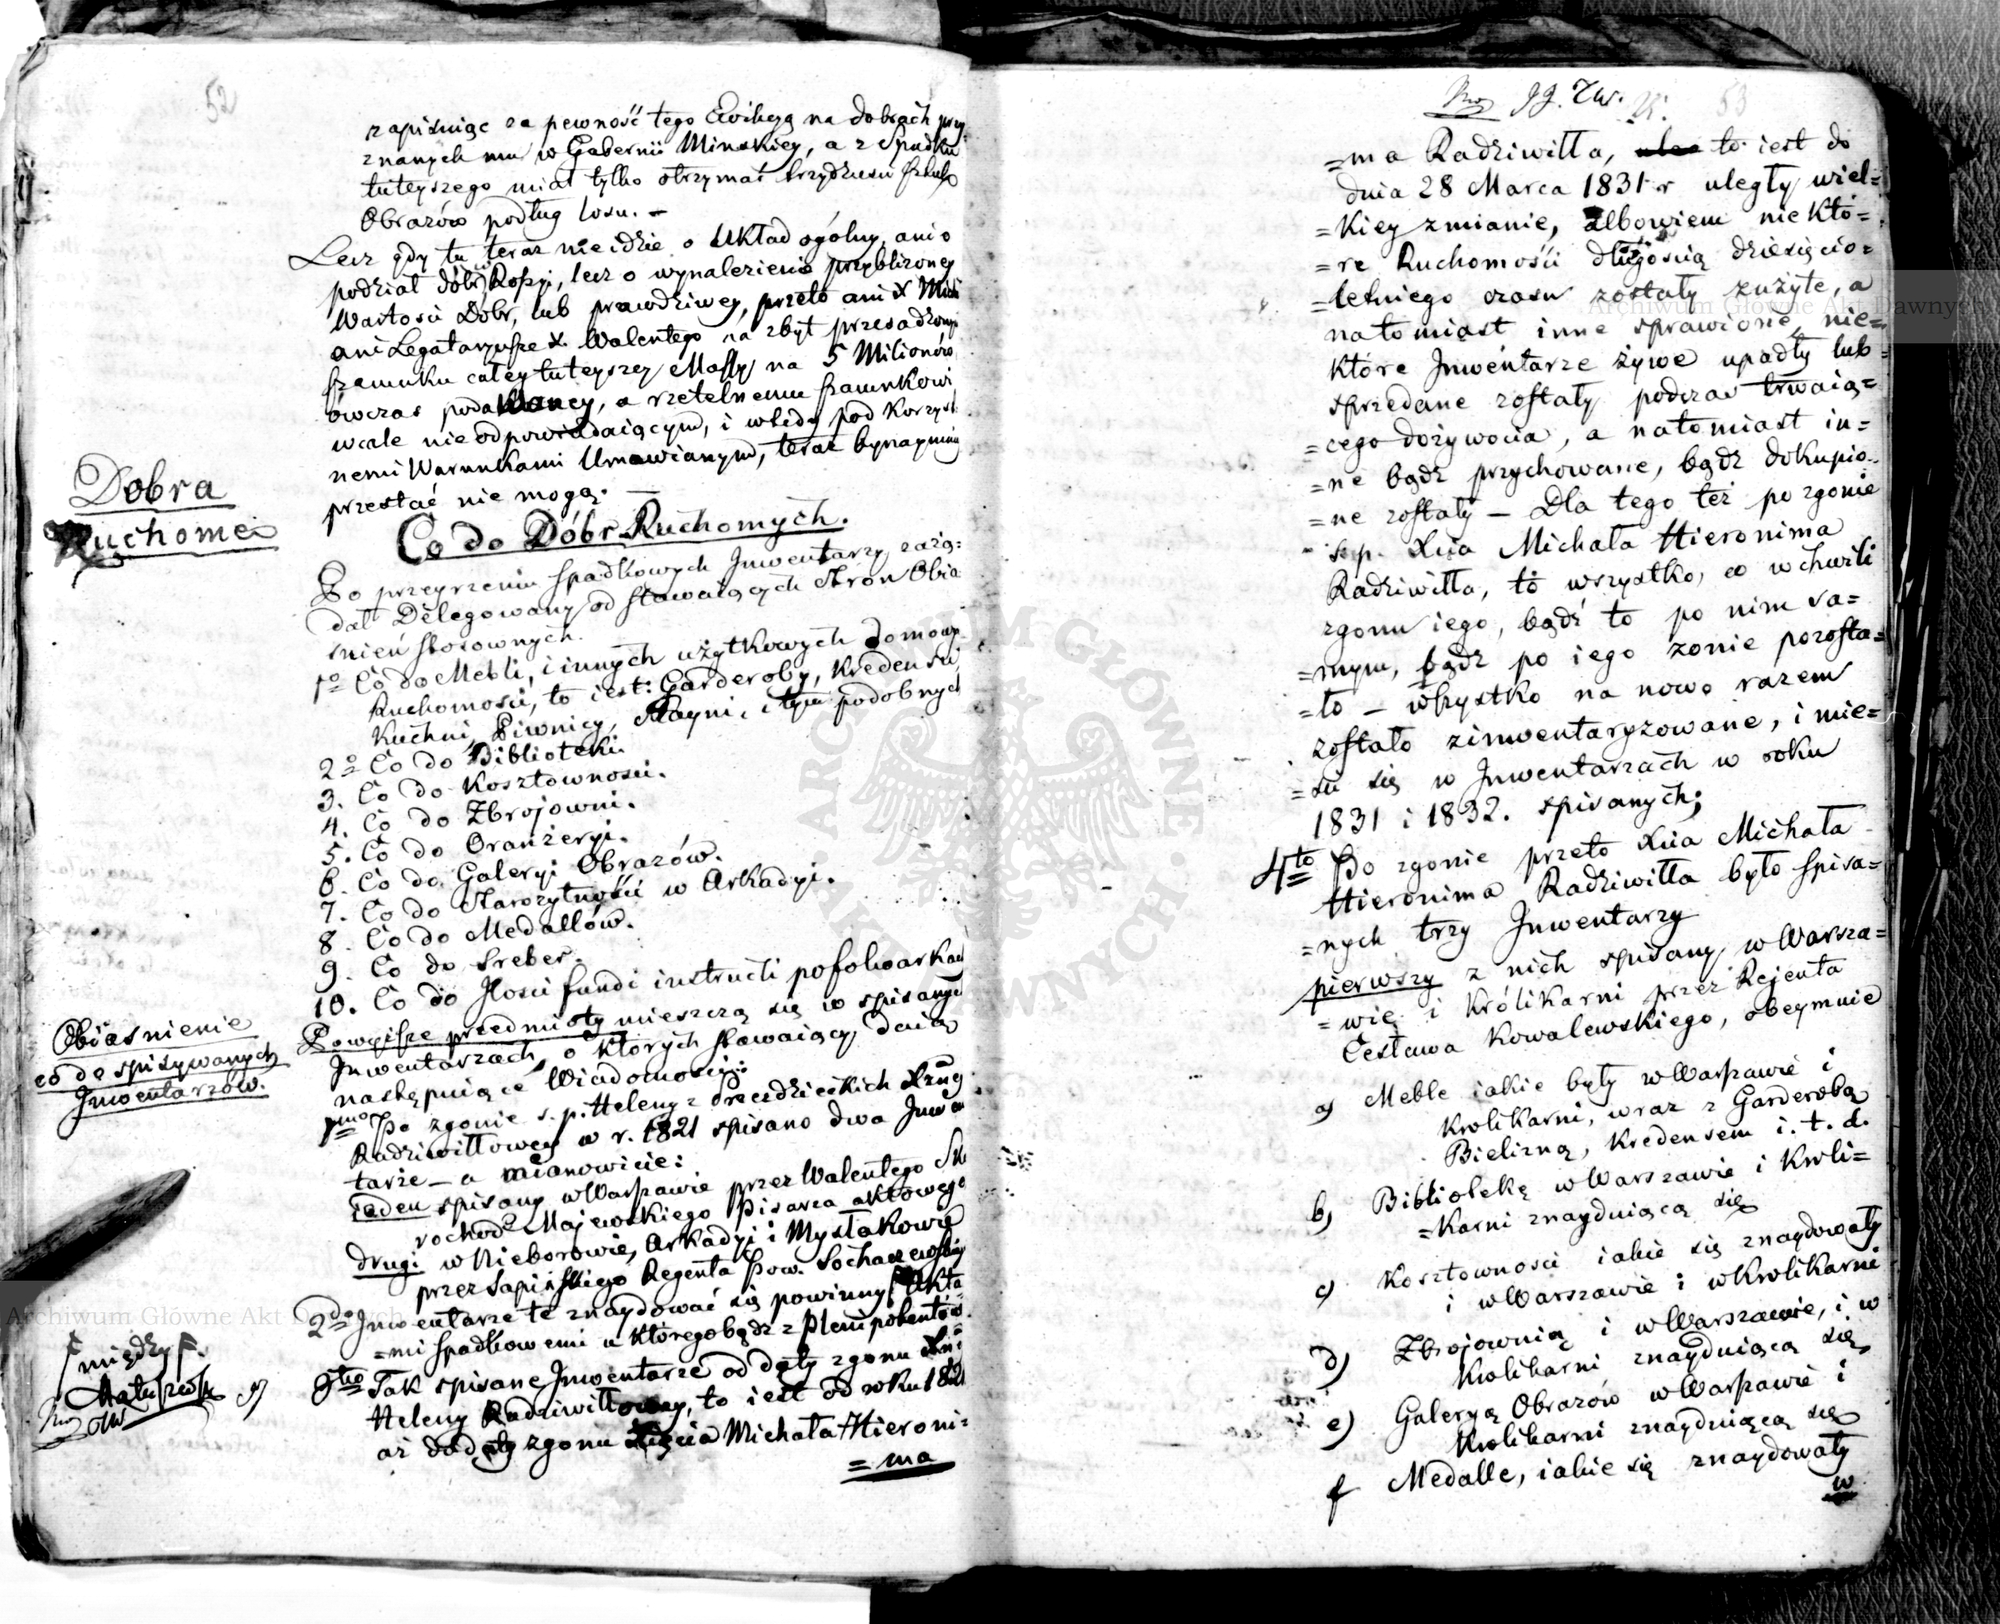 52
zapisuiąc za pewność tego Ewikcyą na dobrach przy-
znanych mu w Gubernii Minskiey, a z Spadku
tuteyszego miał tylko otrzymać trzydzieści sztuk
Obrazów podług losu. –
Lecz gdy tu teraz nie idzie o Układ ogólny, ani o
podział dóbr w Rossyi, lecz o wynalezienie przybliżoney
Wartości Dóbr, lub prawdziwey, przeto ani X Mich
ani Legataryusze X. Walentego na zbyt przesadzonym
szacunku całey tuteyszey Massy na 5 Milionów
ówczas podawaney, a rzetelnemu szacunkowi
wcale nieodpowiadaiącym, i wtedy pod korzyst-
nemi Warunkami Umawianym, teraz bynaymniey
przestać nie mogą. –
Dobra
Ruchome
Co do Dóbr Ruchomych.
Po przeyrzeniu Spadkowych Inwentarzy zażą=
dał Delegowany od stawaiących Stron Obia
śnień stosownych.
1o Co do Mebli, i innych użytkowych domowy
Ruchomości, to iest: Garderoby, Kredensu,
Kuchni, Piwnicy, Stayni, i tym podobnych
2o Co do Biblioteki.
3. Co do Kosztowności.
4. Co do Zbrojowni.
5. Co do Oranżeryi.
6. Co do Galeryi Obrazów.
7. Co do Starożytności w Arkadyi.
8. Co do Medallów.
9. Co do Sreber.
10. Co do Ilości fundi instructi po folwarkach
Obiasnienie
co do spisywanych
Inwentarzów.
Powyższe przedmioty mieszczą się w spisanych
Inwentarzach, o których stawaiący daią
następuiące Wiadomości:
pmo Po zgonie s. p. Heleny z Przezdzieckich Xżny
Radziwiłłowey w r. 1821 spisano dwa Inwen
tarze – a mianowicie:
ieden spisany w Warszawie przez Walentego Sk
rochod Majewskiego Pisarza aktowego
drugi w Nieborowie, Arkadyi i Mysłakowie
przez Łapińskiego Regenta Pow. Sochaczewskiego
2do Inwentarze te znaydować się powinny Akta=
=mi Spadkowemi u któregobądź z Plenipotentów.
między
3tio Tak spisane Inwentarze od daty zgonu Xni=
Heleny Radziwiłłowey, to iest od roku 1821
aż do daty zgonu Xięcia Michała Hieroni=
=ma
53
=ma Radziwiłła, to iest do
dnia 28 Marca 1831 r uległy wiel=
=kiey zmianie, albowiem niektó=
=re Ruchomości długością dziesięcio=
=letniego czasu zostały zużyte, a
natomiast inne sprawione, nie=
które Inwentarze żywe upadły lub
sprzedane zostały podczas trwaią=
=cego dożywocia, a natomiast in=
=ne bądź przychowane, bądź dokupio=
=ne zostały – Dla tego też po zgonie
s. p. Xcia Michała Hieronima
Radziwiłła, to wszystko, co w chwili
zgonu iego, bądź to po nim sa=
=mym, bądź po iego żonie pozosta=
=ło – wszystko na nowo razem
zostało zinwentaryzowane, i mie=
=ści się w Inwentarzach w roku
1831 i 1832. spisanych;
4to Po zgonie przeto Xcia Michała
Hieronima Radziwiłła było spisa=
=nych trzy Inwentarzy
pierwszy z nich spisany w Warsza=
=wie i Królikarni przez Rejenta
Cesława Kowalewskiego, obeymuie
a) Meble iakie były w Warszawie i
Królikarni, wraz z Garderobą
Bielizną, Kredensem i. t. d.
b) Bibliotekę w Warszawie i Króli=
=karni znayduiącą się
c) Kosztowności iakie się znaydowały
i w Warszawie i w Królikarni
d) Zbrojownią i w Warszawie, i w
Królikarni znayduiącą się,
e) Galeryą Obrazów w Warszawie i
Królikarni znayduiącą się
f Medalle, iakie się znaydowały
w
Archiwum Główne Akt Dawnych
Archiwum Główne Akt Dawnych
ARCHIWUM GŁÓWNE · AKT DAWNYCH ·